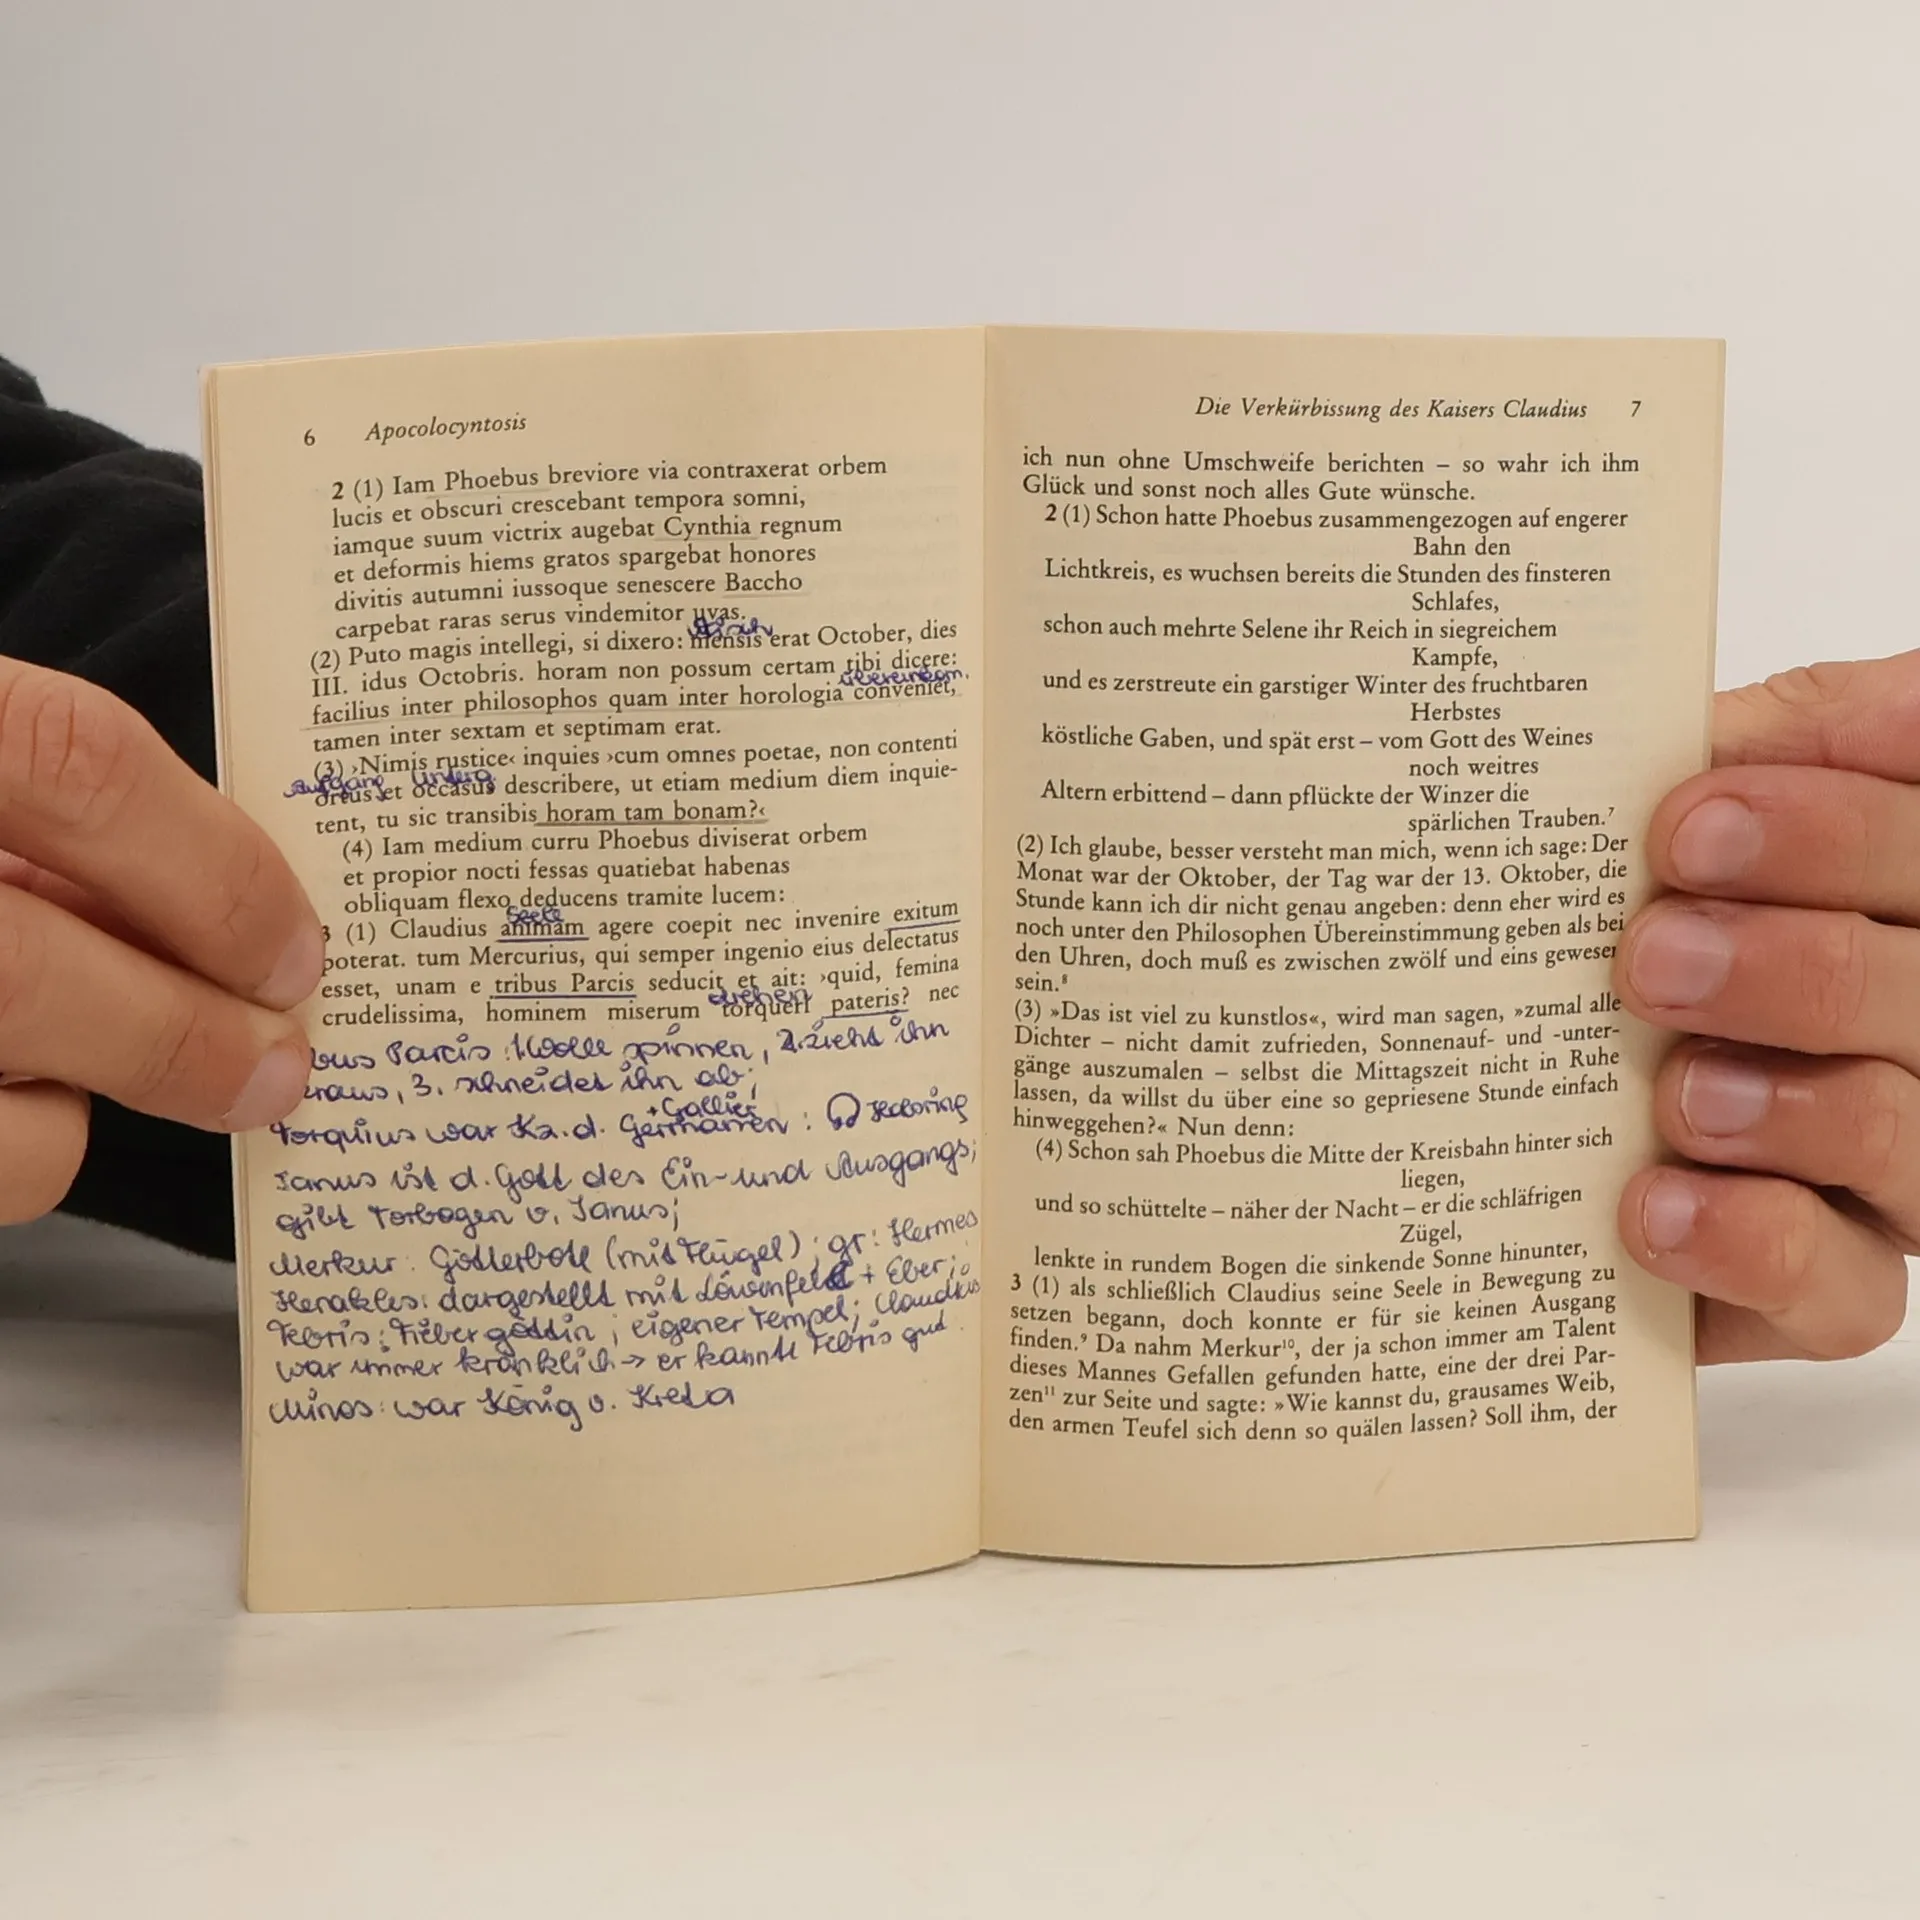 6 Apocolocyntosis
2 (1) Iam Phoebus breviore via contraxerat orbem
lucis et obscuri crescebant tempora somni,
iamque suum victrix augebat Cynthia regnum
et deformis hiems gratos spargebat honores
divitis autumni iussoque senescere Baccho
carpebat raras serus vindemitor uvas.
(2) Puto magis intellegi, si dixero: mensis erat October, dies
III. idus Octobris. horam non possum certam tibi dicere:
übereinkom.
facilius inter philosophos quam inter horologia conveniet,
tamen inter sextam et septimam erat.
(3) ›Nimis rustice‹ inquies ›cum omnes poetae, non contenti
Aufgang Unterg.
ortus et occasus describere, ut etiam medium diem inquie-
tent, tu sic transibis horam tam bonam?‹
(4) Iam medium curru Phoebus diviserat orbem
et propior nocti fessas quatiebat habenas
obliquam flexo deducens tramite lucem:
Seele
3 (1) Claudius animam agere coepit nec invenire exitum
poterat. tum Mercurius, qui semper ingenio eius delectatus
esset, unam e tribus Parcis seducit et ait: ›quid, femina
drehen
crudelissima, hominem miserum torqueri pateris? nec
bus Parcis: 1 Wolle spinnen, 2. zieht ihn
raus, 3. schneidet ihn ab;
+ Gallier
Torquius war Kz. d. Germanen:
Janus ist d. Gott des Ein- und Ausgangs;
gibt Torbogen v. Janus;
Merkur: Götterbote (mit Flügel); gr: Hermes
Herakles: dargestellt mit Löwenfell + Eber;
Febris: Fiebergöttin; eigener Tempel; Claudius
war immer kränklich → er kannte Febris gut.
Minos: war König v. Kreta
Die Verkürbissung des Kaisers Claudius 7
ich nun ohne Umschweife berichten – so wahr ich ihm
Glück und sonst noch alles Gute wünsche.
2 (1) Schon hatte Phoebus zusammengezogen auf engerer
Bahn den
Lichtkreis, es wuchsen bereits die Stunden des finsteren
Schlafes,
schon auch mehrte Selene ihr Reich in siegreichem
Kampfe,
und es zerstreute ein garstiger Winter des fruchtbaren
Herbstes
köstliche Gaben, und spät erst – vom Gott des Weines
noch weitres
Altern erbittend – dann pflückte der Winzer die
spärlichen Trauben.⁷
(2) Ich glaube, besser versteht man mich, wenn ich sage: Der
Monat war der Oktober, der Tag war der 13. Oktober, die
Stunde kann ich dir nicht genau angeben: denn eher wird es
noch unter den Philosophen Übereinstimmung geben als bei
den Uhren, doch muß es zwischen zwölf und eins gewesen
sein.⁸
(3) »Das ist viel zu kunstlos«, wird man sagen, »zumal alle
Dichter – nicht damit zufrieden, Sonnenauf- und -unter-
gänge auszumalen – selbst die Mittagszeit nicht in Ruhe
lassen, da willst du über eine so gepriesene Stunde einfach
hinweggehen?« Nun denn:
(4) Schon sah Phoebus die Mitte der Kreisbahn hinter sich
liegen,
und so schüttelte – näher der Nacht – er die schläfrigen
Zügel,
lenkte in rundem Bogen die sinkende Sonne hinunter,
3 (1) als schließlich Claudius seine Seele in Bewegung zu
setzen begann, doch konnte er für sie keinen Ausgang
finden.⁹ Da nahm Merkur¹⁰, der ja schon immer am Talent
dieses Mannes Gefallen gefunden hatte, eine der drei Par-
zen¹¹ zur Seite und sagte: »Wie kannst du, grausames Weib,
den armen Teufel sich denn so quälen lassen? Soll ihm, der